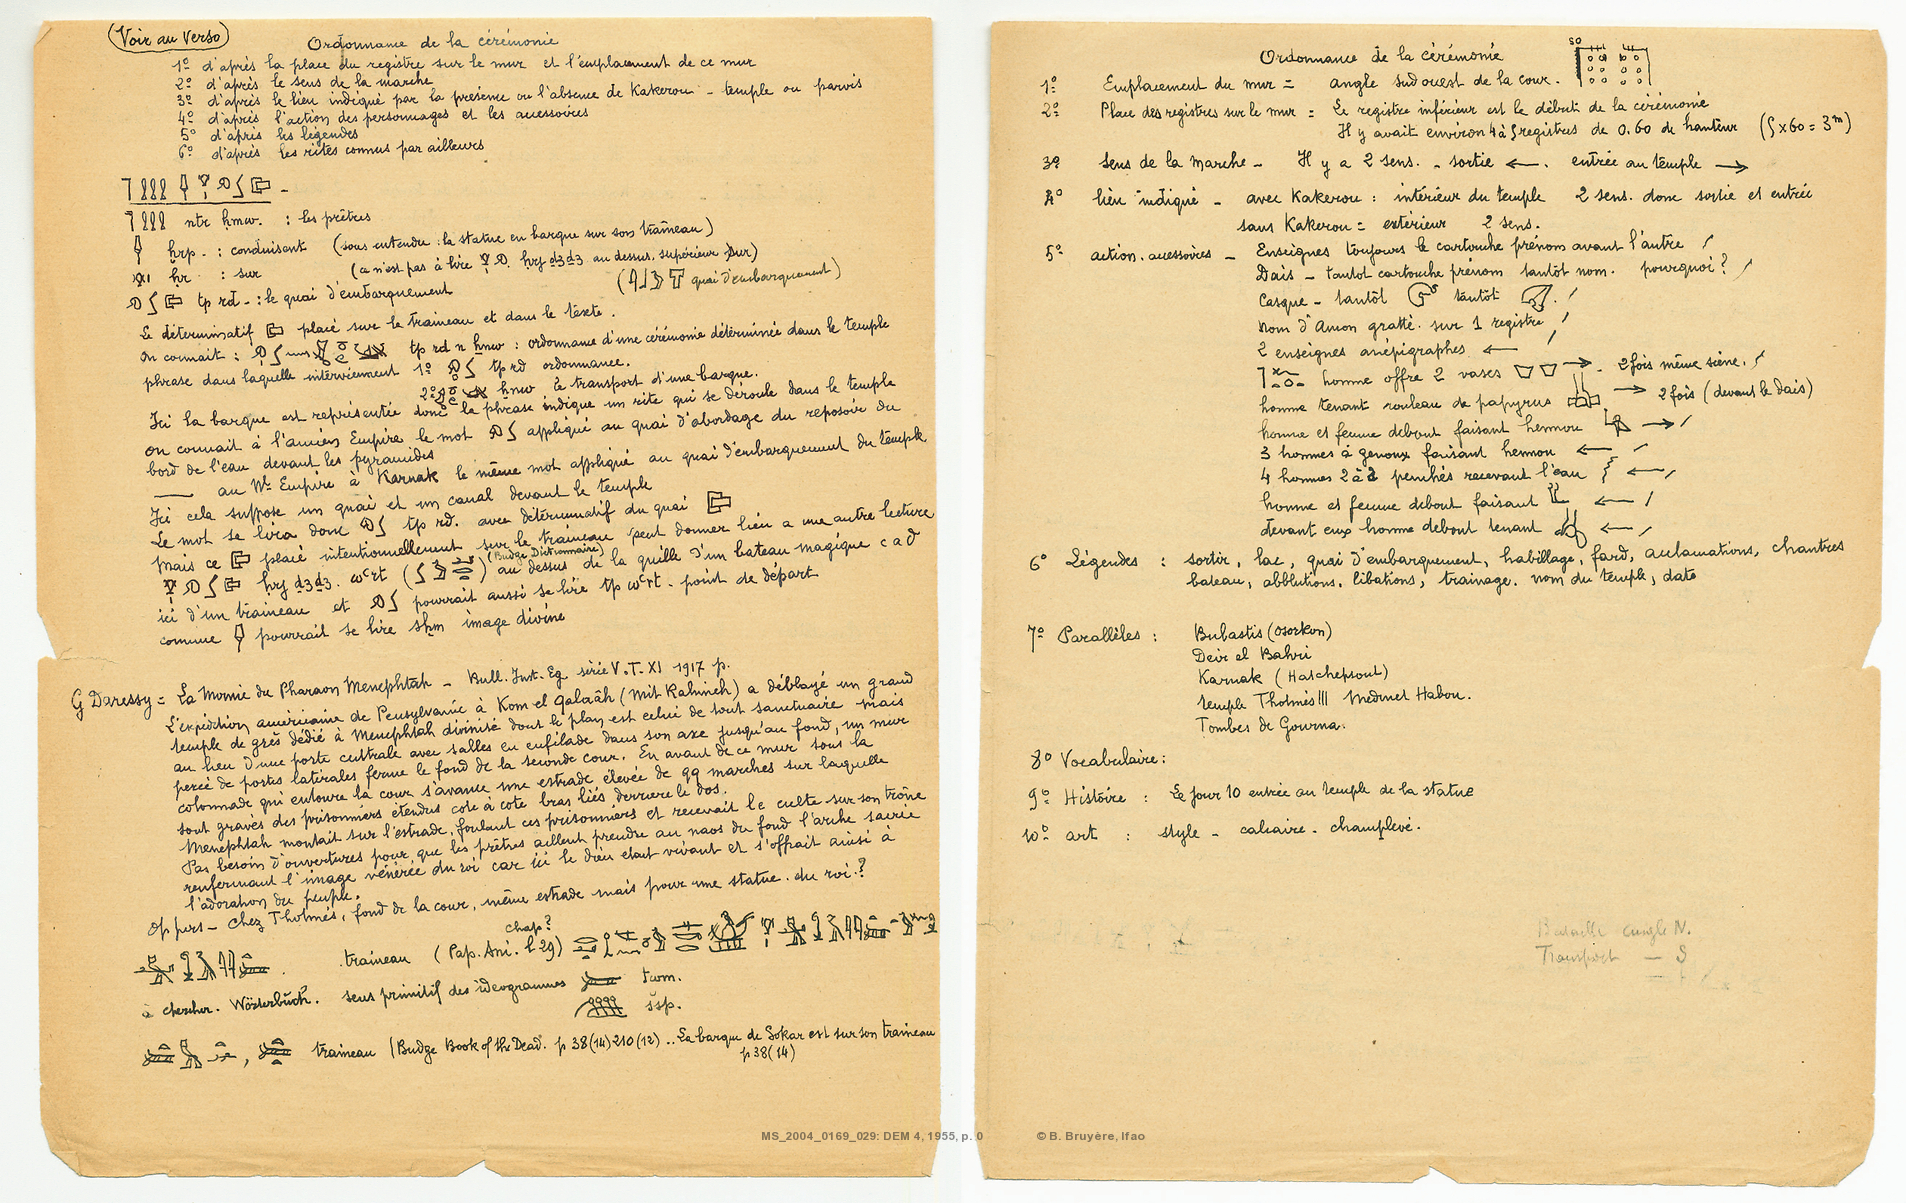 (Voir au Verso)
Ordonnance de la cérémonie
1º d'après la place du registre sur le mur et l'emplacement de ce mur
2º d'après le sens de la marche
3º d'après le lieu indiqué par la présence ou l'absence de Kakerou - temple ou parvis
4º d'après l'action des personnages et les accessoires
5º d'après les légendes
6º d'après les rites connus par ailleurs
ntr ḥmw. : les prêtres
ḫrp. : conduisent (sous entendu : la statue en barque sur son traîneau)
ḥr : sur (ce n'est pas à lire ḥry d3d3 au dessus, supérieur, sur)
tp rd - : le quai d'embarquement ( quai d'embarquement)
Le déterminatif placé sur le traineau et dans le texte.
On connait : tp rd n ẖnw : ordonnance d'une cérémonie déterminée dans le temple
phrase dans laquelle interviennent 1º tp rd ordonnance.
2º ẖnw le transport d'une barque.
Ici la barque est représentée donc la phrase indique un rite qui se déroule dans le temple
on connait à l'ancien Empire le mot appliqué au quai d'abordage du reposoir du
bord de l'eau devant les pyramides
au Nl Empire à Karnak le même mot appliqué au quai d'embarquement du temple
Ici cela suppose un quai et un canal devant le temple
Le mot se lira donc tp rd. avec déterminatif du quai
Mais ce placé intentionnellement sur le traineau peut donner lieu a une autre lecture
ḥry d3d3. wʿrt ( ) (Budge Dictionnaire) au dessus de la quille d'un bateau magique c a d
ici d'un traineau et pourrait aussi se lire tp wʿrt - point de départ
comme pourrait se lire sḫm image divine
G Daressy = La Momie du Pharaon Menephtah - Bull. Inst. Eg. série V. T. XI 1917 p.
L'expédition américaine de Pensylvanie à Kom el Qalaâh (Mit Rahineh) a déblayé un grand
temple de grès dédié à Menephtah divinisé dont le plan est celui de tout sanctuaire mais
au lieu d'une porte centrale avec salles en enfilade dans son axe jusqu'au fond, un mur
percé de portes latérales ferme le fond de la seconde cour. En avant de ce mur sous la
colonnade qui entoure la cour s'avance une estrade élevée de qq marches sur laquelle
sont gravés des prisonniers étendus cote à cote bras liés derrière le dos.
Menephtah montait sur l'estrade, foulant ces prisonniers et recevait le culte sur son trône
Pas besoin d'ouvertures pour que les prêtres aillent prendre au naos du fond l'arche sacrée
renfermant l'image vénérée du roi car ici le dieu etait vivant et s'offrait ainsi à
l'adoration du peuple.
Op pers - Chez Thotmès, fond de la cour, même estrade mais pour une statue du roi ?
chap?
traineau (Pap. Ani. l 29)
à chercher. Wörterbuch. sens primitif des idéogrammes twm.
šsp.
, traineau (Budge Book of the Dead. p 38(14) 210 (12) .. La barque de Sokar est sur son traineau
p 38(14)
Ordonnance de la cérémonie
SO
1º Emplacement du mur = angle sud ouest de la cour.
2º Place des registres sur le mur = Le registre inférieur est le début de la cérémonie
Il y avait environ 4 à 5 registres de 0.60 de hauteur (5 x 60 = 3m)
3º Sens de la marche - Il y a 2 sens. - sortie ←. entrée au temple →
4º lieu indiqué - avec Kakerou : intérieur du temple 2 sens. donc sortie et entrée
sans Kakerou = extérieur 2 sens.
5º action. accessoires - Enseignes toujours le cartouche prénom avant l'autre /
Dais - tantôt cartouche prénom tantôt nom. pourquoi ? /
Casque - tantôt tantôt . /
Nom d'Amon gratté. sur 1 registre /
2 enseignes anépigraphes ← /
homme offre 2 vases → - 2 fois même scène. /
homme tenant rouleau de papyrus → 2 fois (devant le dais)
homme et femme debout faisant hennou → /
3 hommes à genoux faisant hennou ← /
4 hommes 2 à 2 penchés recevant l'eau ← /
homme et femme debout faisant ← /
devant eux homme debout tenant ← /
6º Légendes : sortir, lac, quai d'embarquement, habillage, fard, acclamations, chantres
bateau, abblutions, libations, trainage. nom du temple, date
7º Parallèles : Bubastis (Osorkon)
Deir el Bahri
Karnak (Hatchepsout)
temple Thotmès III Medinet Habou.
Tombes de Gourna.
8º Vocabulaire :
9º Histoire : Le jour 10 entrée au temple de la statue
10º art : style - calcaire - champlevé.
angle N.
Transport - S
MS_2004_0169_029: DEM 4, 1955, p. 0 © B. Bruyère, Ifao